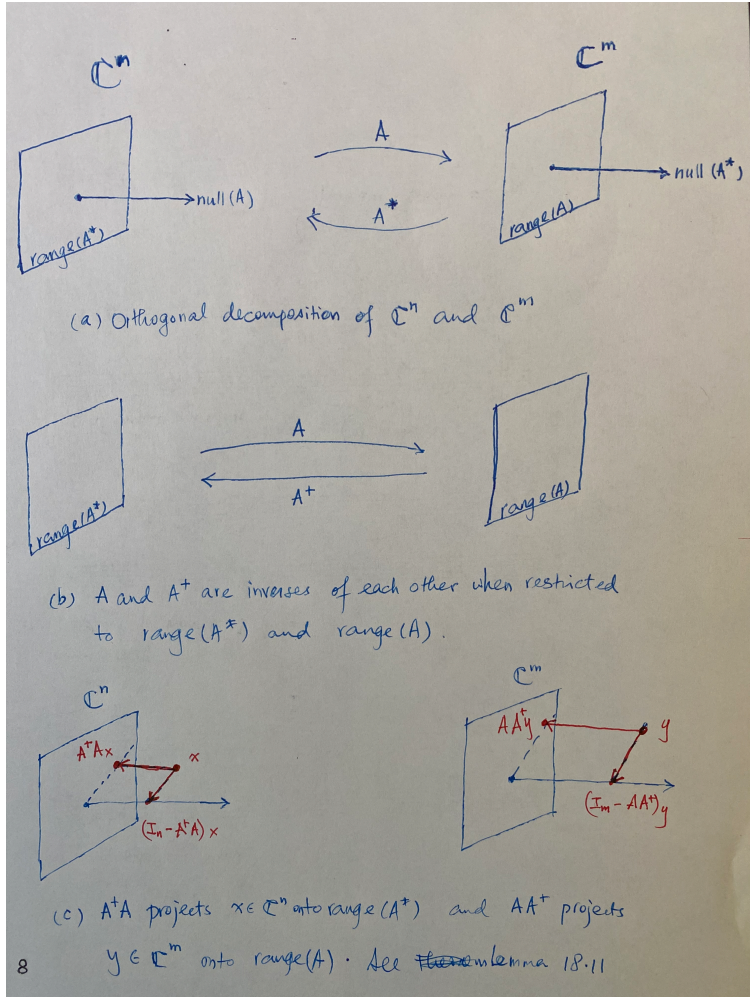 ℂᵐ
ℂᵐ
A
null(A)
null(A*)
A*
range(A*)
range(A)
(a) Orthogonal decomposition of ℂⁿ and ℂᵐ
A
A⁺
range(A*)
range(A)
(b) A and A⁺ are inverses of each other when restricted
to range(A*) and range(A).
ℂⁿ
ℂᵐ
A⁺Ax
x
AA⁺y
y
(Iₙ - A⁺A)x
(Iₘ - AA⁺)y
(c) A⁺A projects x ∈ ℂⁿ onto range(A⁺) and AA⁺ projects
y ∈ ℂᵐ onto range(A). See lemma 18.11
8